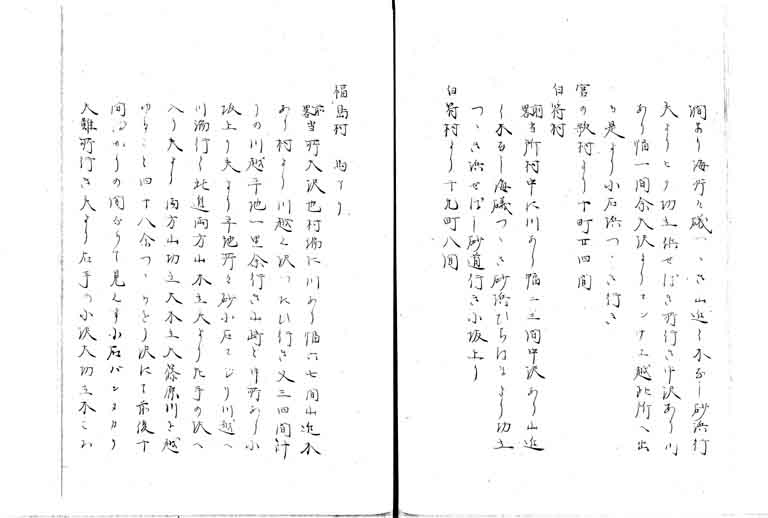 澗あり海所々磯つゝき山近く木なし砂浜行
夫より切立浜せばき所行き中沢あり川
あり幅一間余大沢よりマンナエ越此所へ出
る是より小石浜つゝき行き
宮の歌村より十町廿四間
白符村
前略当所村中に川あり幅二三間中沢あり山近
く木なし海磯つゝき砂浜ひらはまより切立
つゝき浜せばし砂道行き小坂上り
白符村より十九町八間
福島村 馬つき
前略当所大沢也村端に川あり幅六七間山近木
あり村より川越え沢つたい行き又三四間計
りの川越平地一里余行き山崎と申所あり小
坂上り夫より平地所々砂小石まじり川越へ
川端行く此道両方山木立夫より左手の沢へ
入り夫より両方山切立大木立大篠原川を越
ゆること四十八合つゝらとう沢にて前後十
間ばかりの間ならで見えず小石バンヌカり
大難所行き夫より右手の小沢大切立木こみ